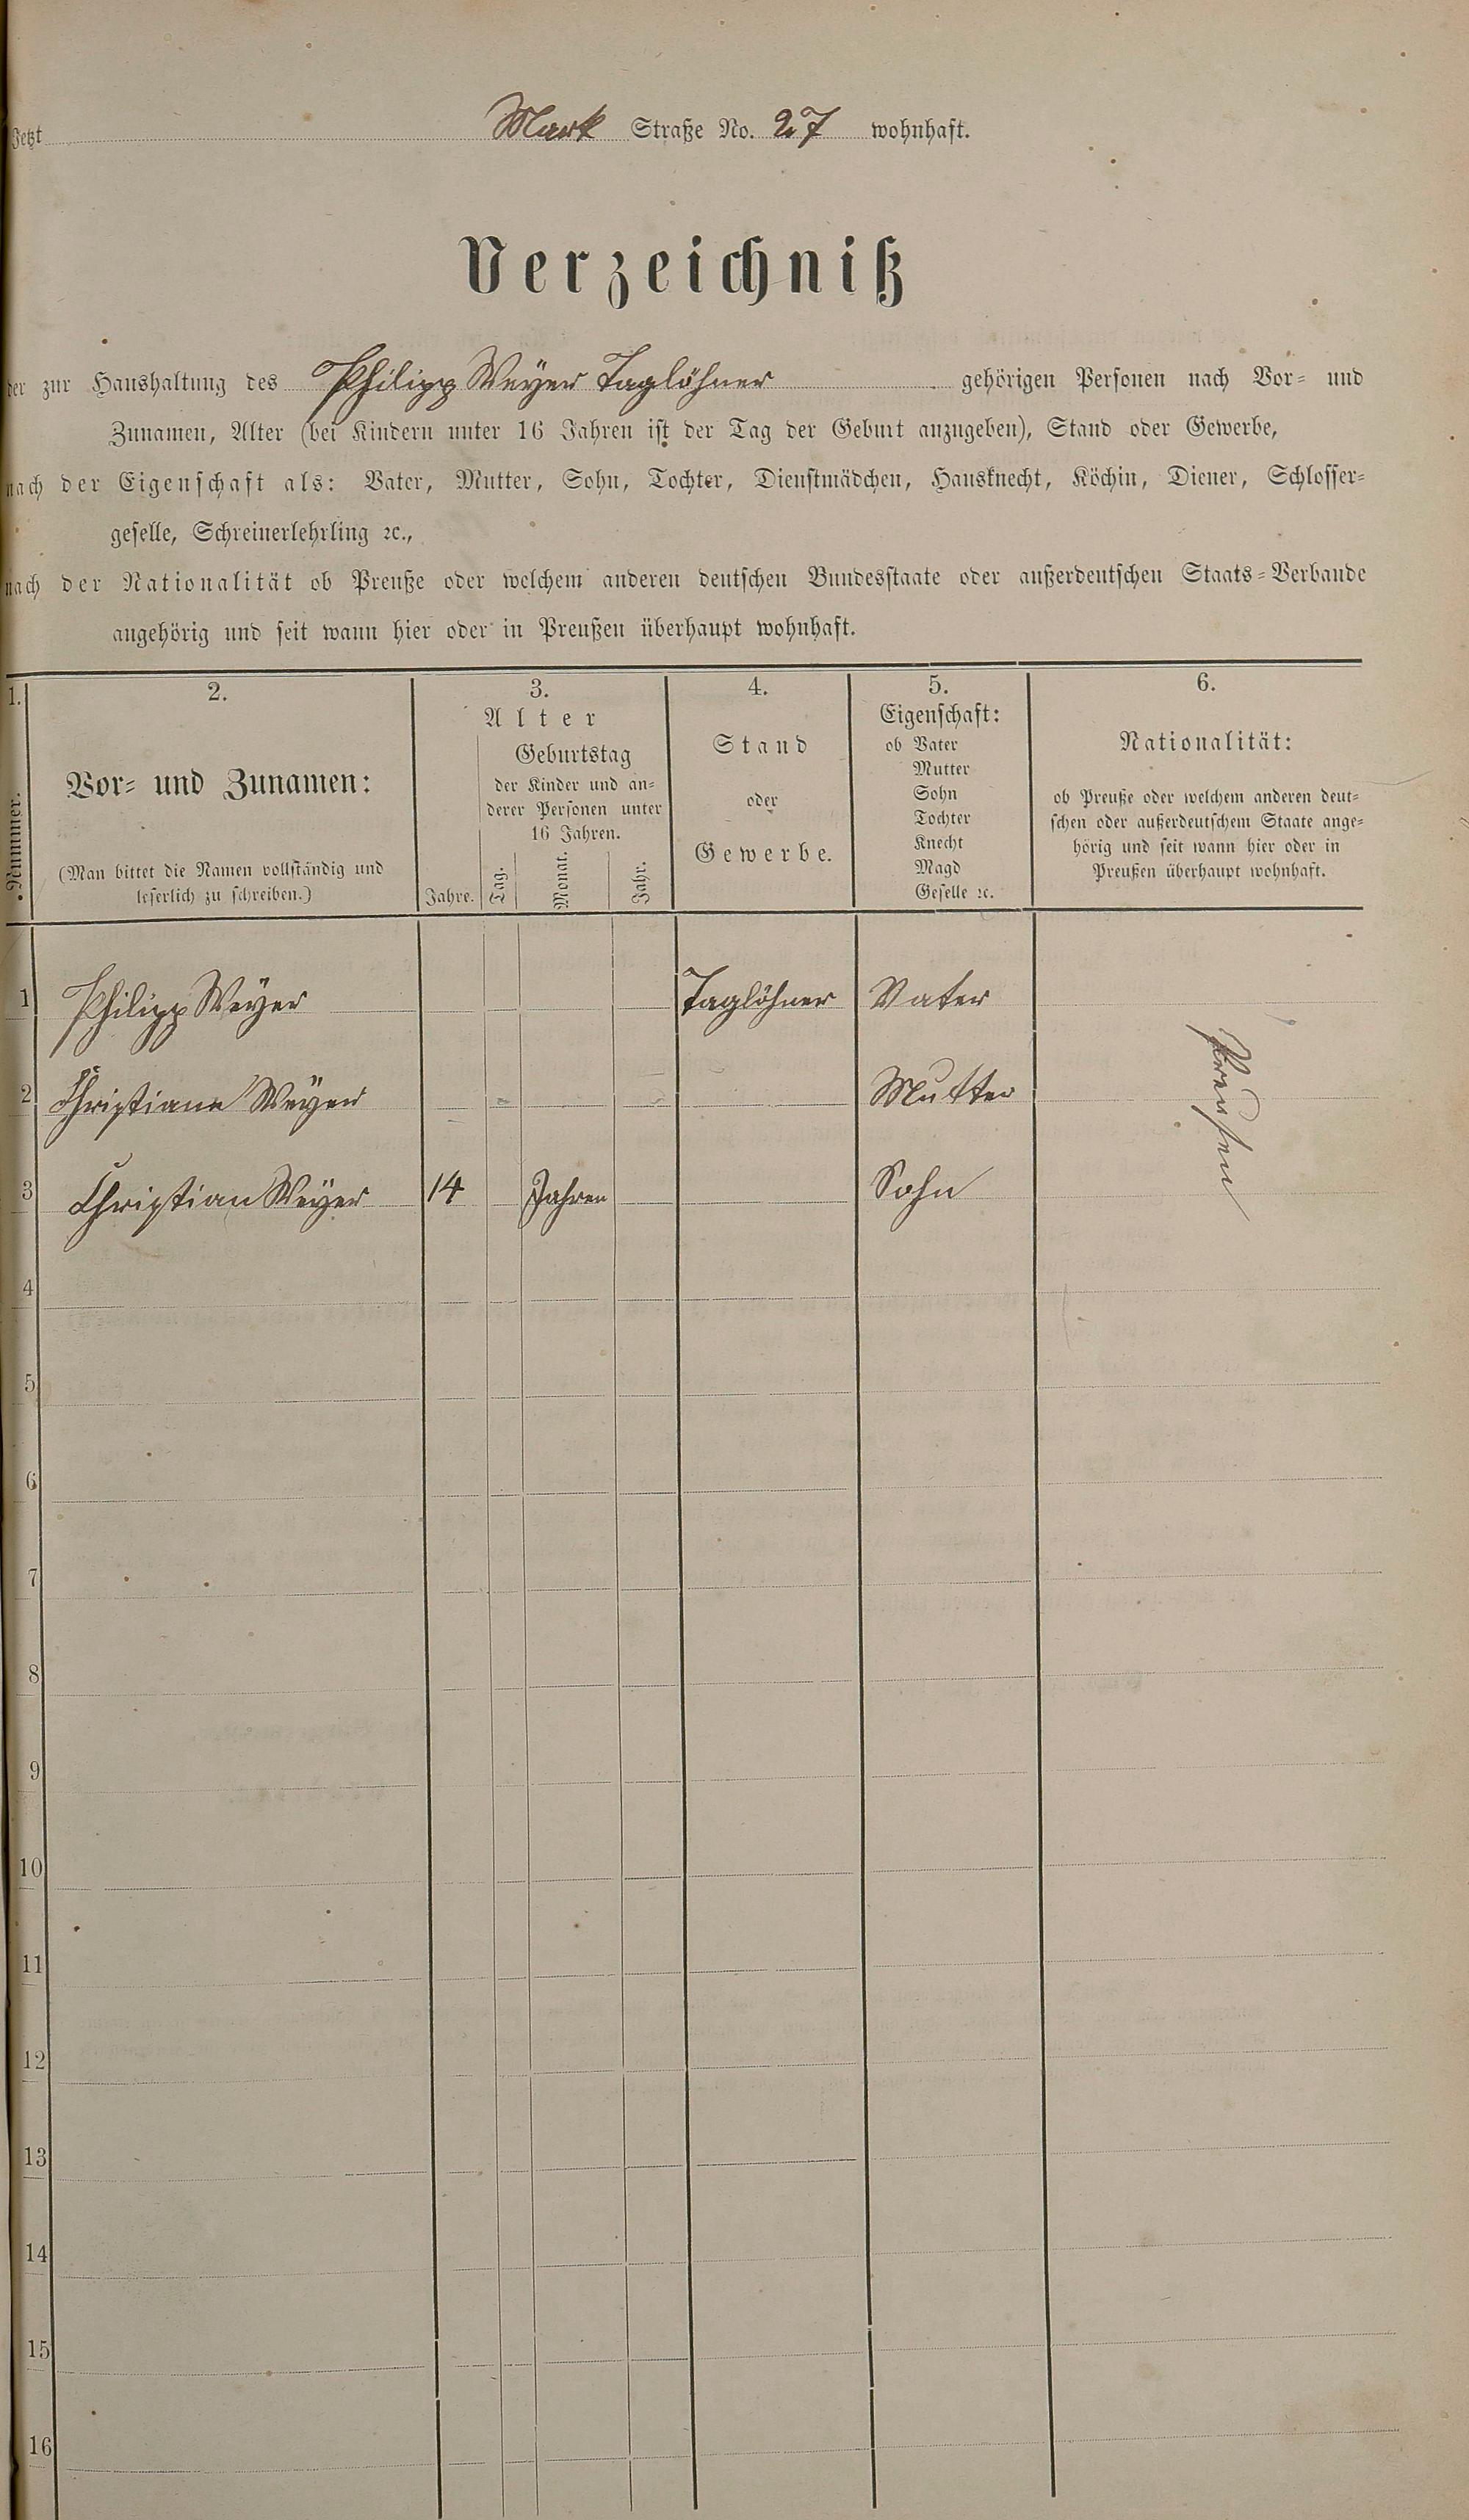 Jetzt Mark Straße No. 27 wohnhaft.
Verzeichniß
der zur Haushaltung des Philipp Weyer Taglöhner gehörigen Personen nach Vor- und
Zunamen, Alter (bei Kindern unter 16 Jahren ist der Tag der Geburt anzugeben), Stand oder Gewerbe,
nach der Eigenschaft als: Vater, Mutter, Sohn, Tochter, Dienstmädchen, Hausknecht, Köchin, Diener, Schlosser-
geselle, Schreinerlehrling ꝛc.,
nach der Nationalität ob Preuße oder welchem anderen deutschen Bundesstaate oder außerdeutschen Staats-Verbande
angehörig und seit wann hier oder in Preußen überhaupt wohnhaft.
1.
Nummer.
2.
Vor- und Zunamen:
(Man bittet die Namen vollständig und
leserlich zu schreiben.)
3.
Alter
Geburtstag
der Kinder und an-
derer Personen unter
16 Jahren.
Jahre. Tag. Monat. Jahr.
4.
Stand
oder
Gewerbe.
5.
Eigenschaft:
ob Vater
Mutter
Sohn
Tochter
Knecht
Magd
Geselle ꝛc.
6.
Nationalität:
ob Preuße oder welchem anderen deut-
schen oder außerdeutschem Staate ange-
hörig und seit wann hier oder in
Preußen überhaupt wohnhaft.
1 Philipp Weyer Taglöhner Vater
2 Christiane Weyer Mutter
3 Christian Weyer 14 Jahren Sohn
Preusen
4
5
6
7
8
9
10
11
12
13
14
15
16